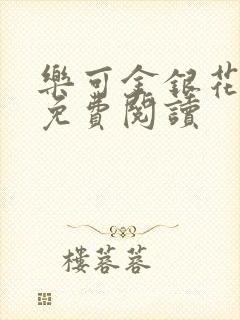 樂可金銀花
免費閱讀
樓蓉蓉